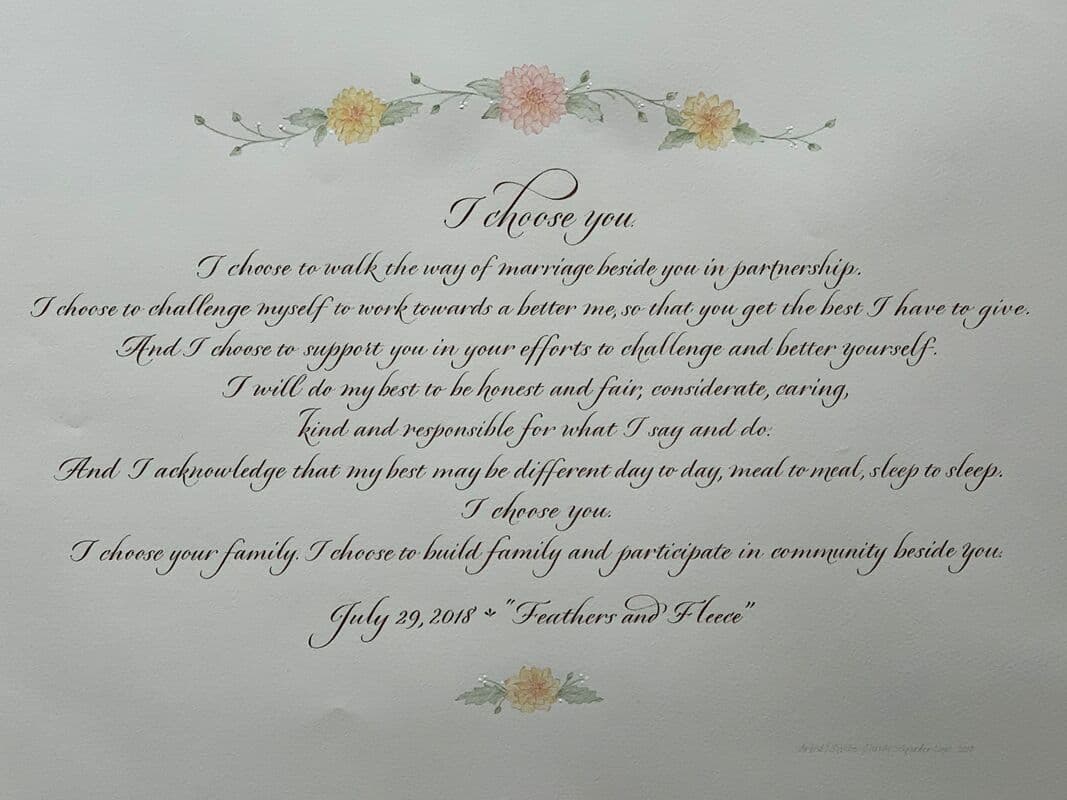 I choose you.
I choose to walk the way of marriage beside you in partnership.
I choose to challenge myself to work towards a better me, so that you get the best I have to give.
And I choose to support you in your efforts to challenge and better yourself.
I will do my best to be honest and fair, considerate, caring,
kind and responsible for what I say and do.
And I acknowledge that my best may be different day to day, meal to meal, sleep to sleep.
I choose you.
I choose your family. I choose to build family and participate in community beside you.
July 29, 2018 "Feathers and Fleece"
Artist / Scribe 2018